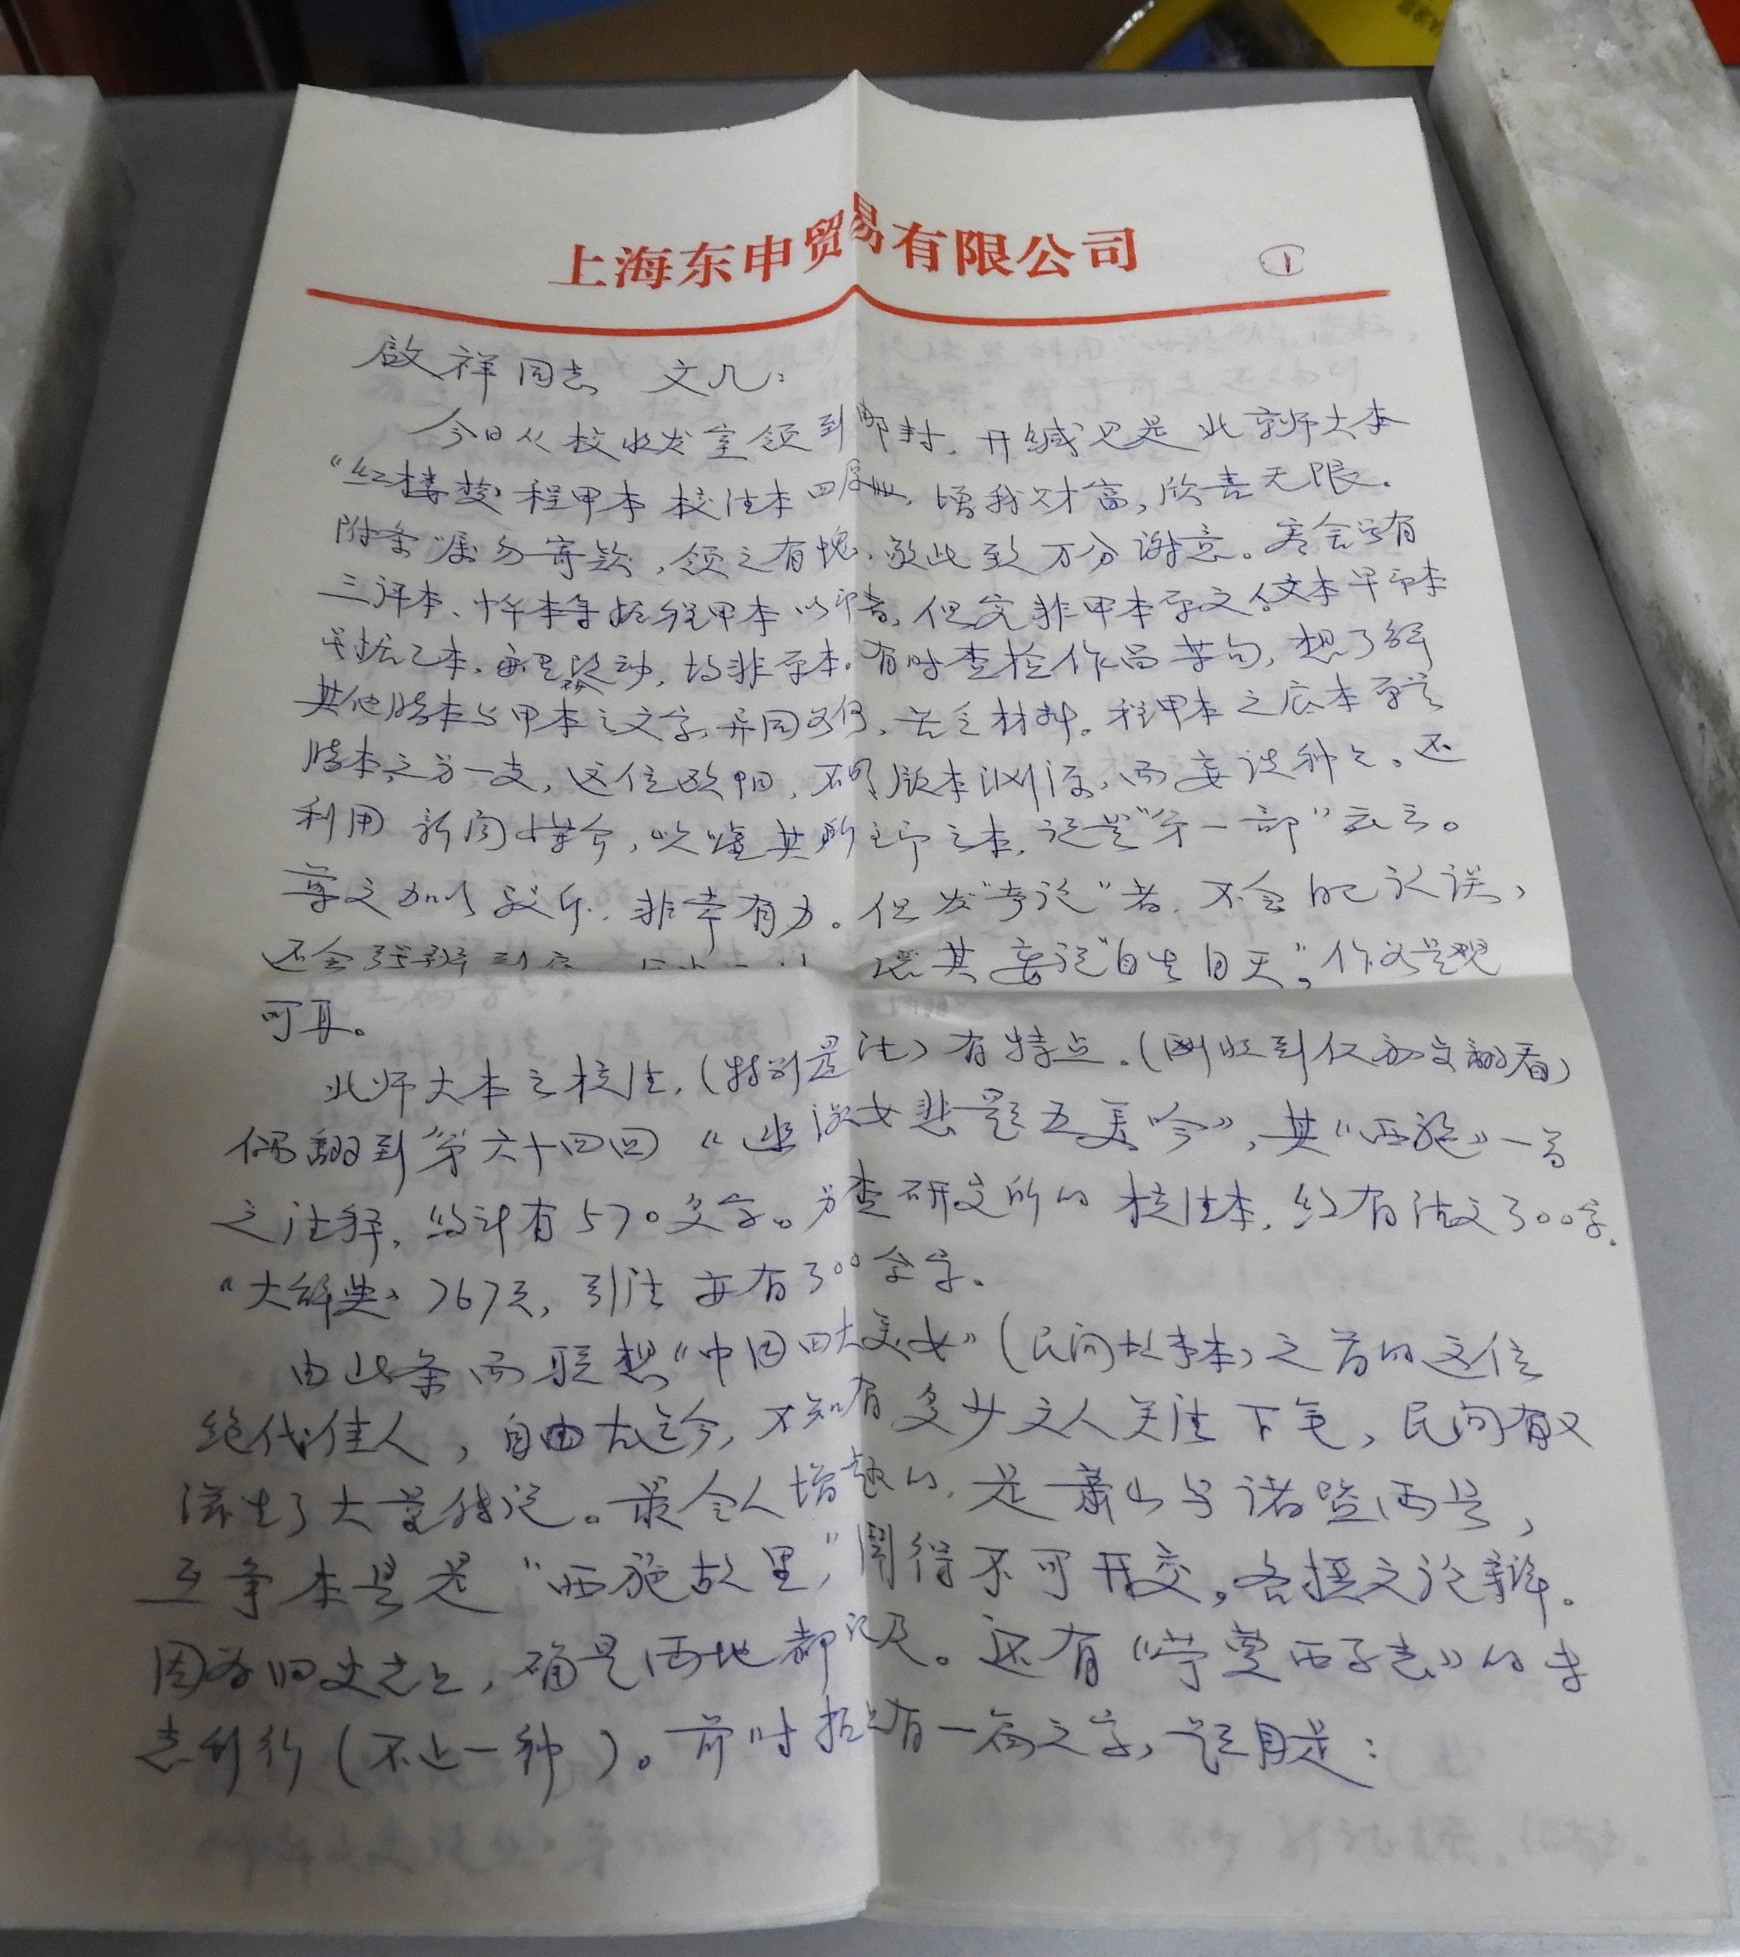 上海东申贸易有限公司
①
啟祥同志 文几:
今日从校收发室领到邮封,开缄见是北京师大本
“红楼梦”程甲本校注本四厚册,增我财富,欣喜无限。
附条嘱勿寄款,领之有愧,致此致万分谢意。
三评本、本等据程甲本以印者,但究非甲本原文。本
乙本,改动,均非原本。有时查检作品某句,想了解
其他脂本与甲本之文字异同如何,苦乏材料。程甲本之底本原是
脂本之另一支,这位欧阳,不明版本渊源,而妄谈种种。还
利用新闻媒介,吹嘘其所主印之本,说是“第一部”云云。
尊文加以驳斥,非常有力。但发“奇论”者,不会自己认误,
还会强辩到底 其妄说“自生自灭”,作如是观
可耳。
北师大本之校注,(特别是注)有特点。(刚收到仅初文翻看)
偶翻到第六十四回《幽淑女悲题五美吟》,其《西施》一首
之注释,约计有570多字。另查研究所的校注本,约有注文300字。
“大辞典”767页,引注亦有300余字。
由此条而联想“中国四大美女”(民间故事本)之首的这位
绝代佳人,自由古迄今,不知有多少文人关注下笔,民间有又
滋生了大量传说。最令人增趣的,是萧山与诸暨两县,
互争本县是“西施故里”,闹得不可开交。各撰文论辩。
因为旧史志上,确是两地都记及。还有《苧萝西子志》的专
志刊行(不止一种)。前时报上有一篇文字,题目是: